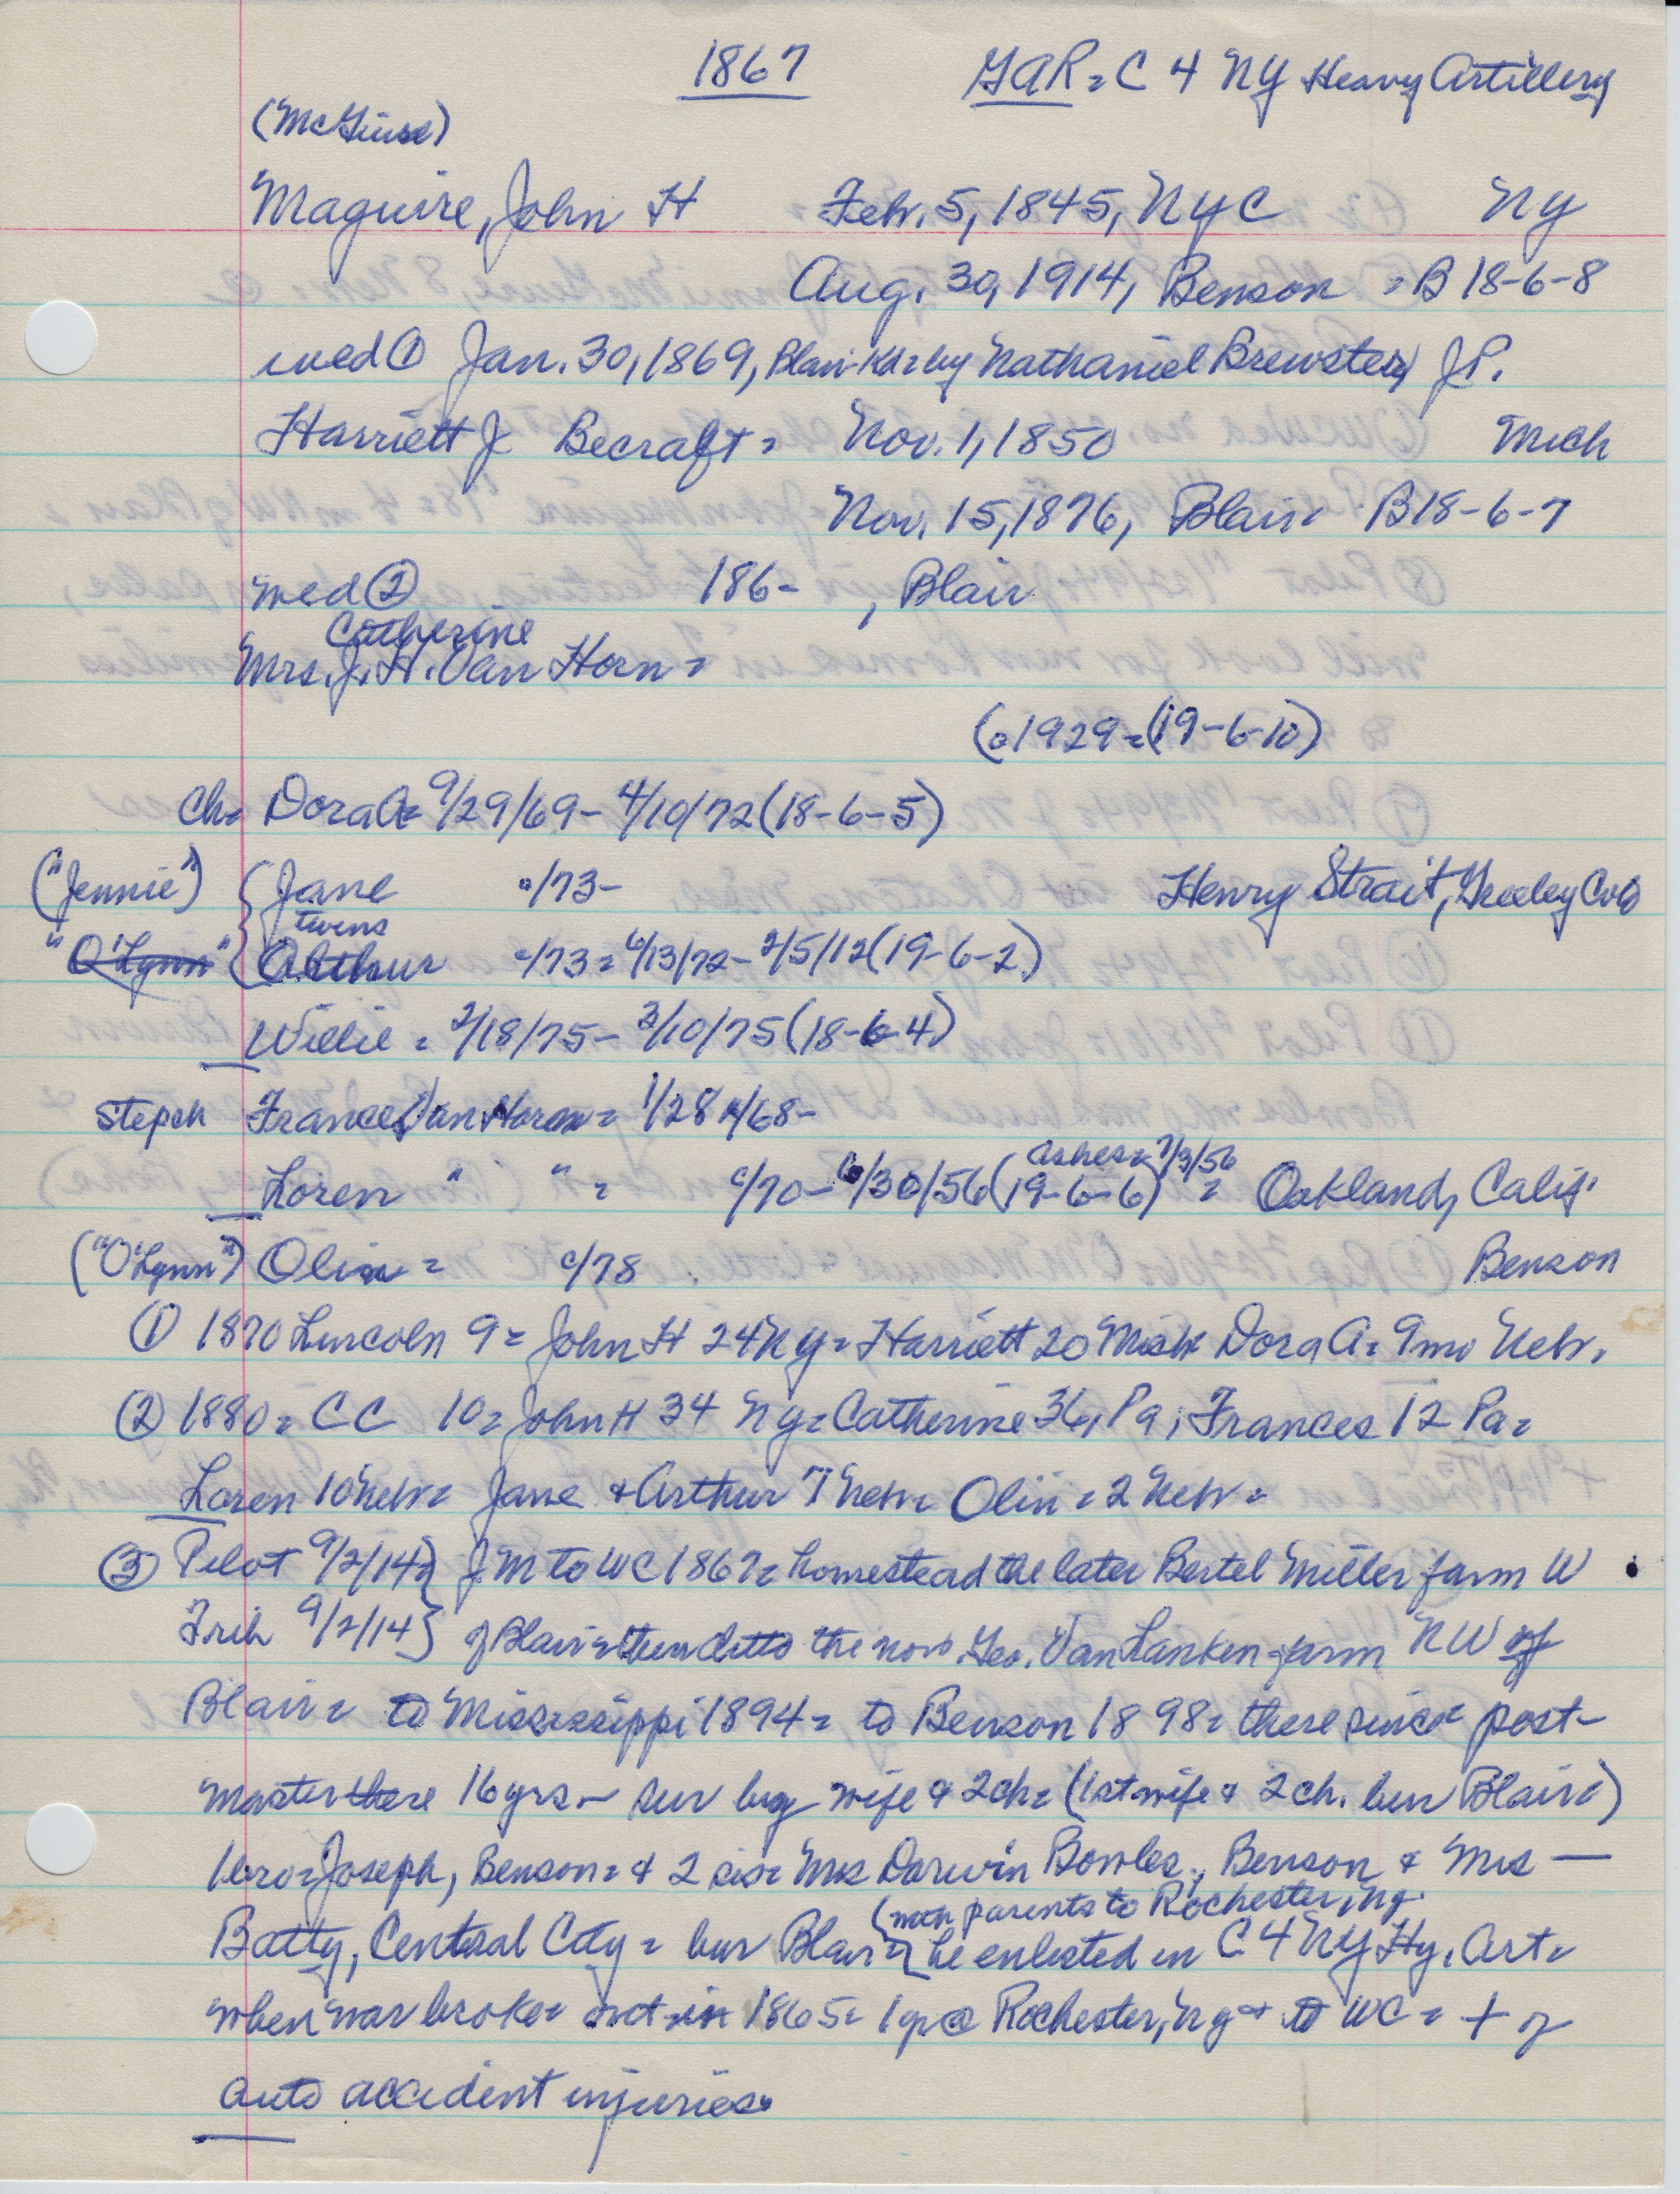 1867 GAR = C 4 NY Heavy Artillery
(McGuire)
Maguire, John H Feb. 5, 1845, NYC NY
Aug. 30, 1914, Benson = B 18-6-8
wed ① Jan. 30, 1869, Blair = by Nathaniel Brewster, J.P.
Harriett J Becraft = Nov. 1, 1850 Mich
Nov. 15, 1876, Blair = B18-6-7
wed ② 186- , Blair
Catherine
Mrs. J. H. Van Horn =
( 1929 = (19-6-10)
Ch = Dora A = 9/29/69 - 4/10/72 (18-6-5)
("Jennie") Jane c/73 - Henry Strait, Greeley Colo
twins
"O'Lynn" Arthur c/73 = 6/13/72 - 2/5/12 (19-6-2)
Willie = 2/18/75 - 3/10/75 (18-6-4)
Stepch Frances Van Horn = 1/28 /68 -
ashes = 7/3/56
Loren " " = c/70 - 6/30/56 (19-6-6) = Oakland, Calif.
("O'Lynn") Olin = c/78 Benson
① 1870 Lincoln 9 = John H 24 NY = Harriett 20 Mich Dora A = 9 mo Nebr.
② 1880 = CC 10 = John H 34 NY = Catherine 36, Pa, Frances 12 Pa =
Loren 10 Nebr = Jane & Arthur 7 Nebr = Olin = 2 Nebr =
③ Pilot 9/2/14 = } JM to WC 1867 = homestead the later Bertel Miller farm W
Trib 9/2/14 } of Blair = then ditto the now Geo. Van Lanken farm NW of
Blair = to Mississippi 1894 = to Benson 1898 = there since = post-
master there 16 yrs - sur by wife & 2 ch = (1st wife & 2 ch. bur Blair =)
1 bro = Joseph, Benson = & 2 sis = Mrs Darwin Bowles, Benson & Mrs —
(with parents to Rochester, NY.
Batty, Central City = bur Blair = he enlisted in C 4 NY Hy. Art =
when war broke out in 1865 = 1 yr @ Rochester, NY & to WC = + of
auto accident injuries.